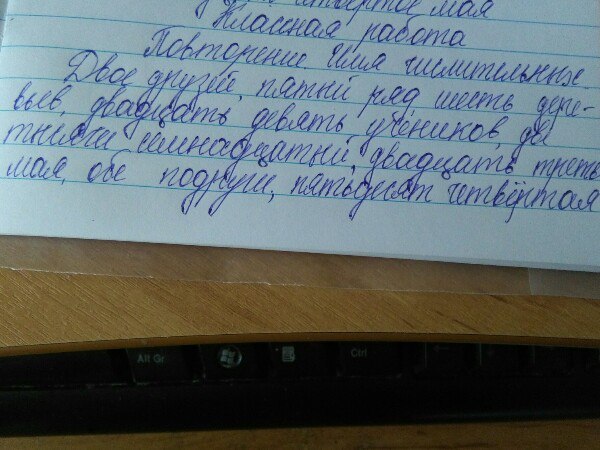 четвёртое мая
Классная работа
Повторение Имя числительных
Двое друзей, пятый ряд, шесть дере-
вьев, двадцать девять учеников, две
тысячи семнадцатый, двадцать треть
мая, обе подруги, пятьдесят четвёртая
Alt Gr
Ctrl